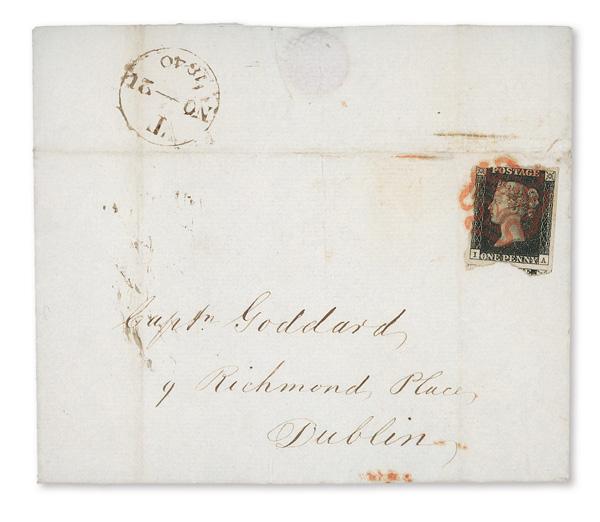 POSTAGE
I A
ONE PENNY
Captn Goddard,
9 Richmond Place,
Dublin